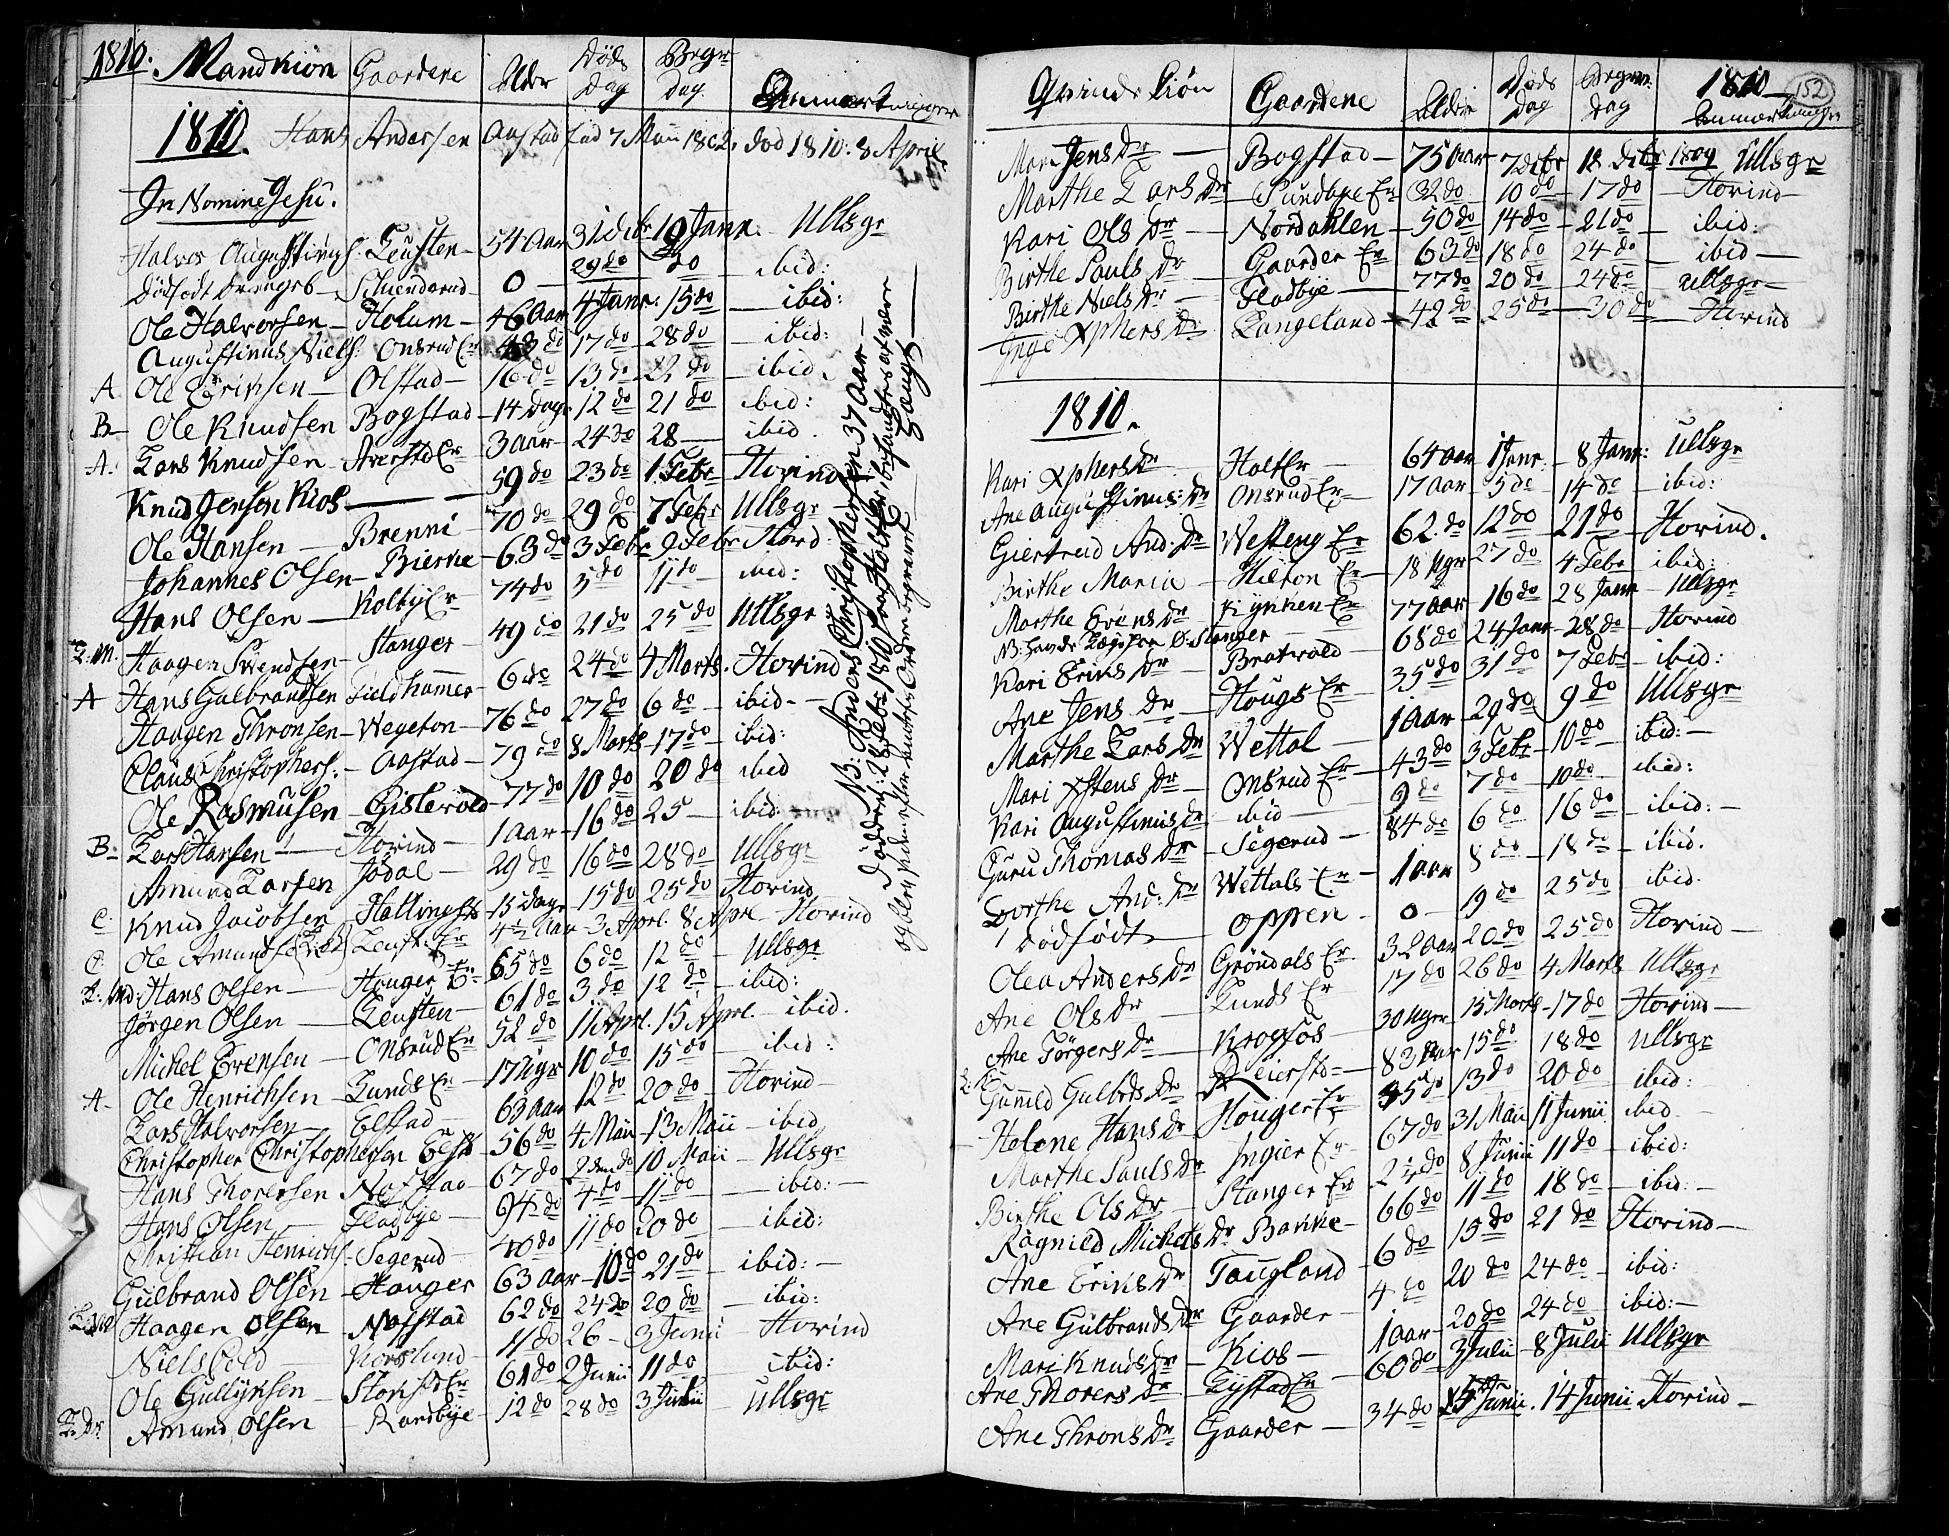 1810. Mandkiön Gaardene Alder Döds Dag Begr Dag Anmærkninger
1810. Hans Andersen Aastad fød 7 Maii 1802. död 1810: 8 April.
In Nomine Jesu.
Halvor Augustinus: Leusten 54 Aar 31 decbr 19 Janr: Ullsgr
Dödfödt Drengeb 0 29 do do ibid:
Ole Halvorsen Holum 46 Aar 4 Janr: 15 do ibid:
Augustinus Niels: Onsrud Er 43 do 17 do 28 do ibid:
A Ole Erichsen Olstad 16 do 13 do 22 do ibid.
B Ole Knudsen Bogstad 14 Dage 12 do 21 do ibid:
A. Lars Knudsen Averstd Er 3 Aar 24 do 28 ibid
Knud Jensen Kios 59 do 23 do 1 Febr Hovind
Ole Hansen Brenni 70 do 29 do 7 Febr Ullsgr
Johannes Olsen Bierke 63 do 3 Febr 9 Febr Hovd
Hans Olsen Kolby Er 74 do 5 do 11 do ibid:
Haagen Svendsen Stanger 49 do 21 do 25 do Ullsgr
A Hans Gulbrandsen Fieldhamer 6 do 24 do 4 Marts. Hovind
Haagen Thronsen Wegeton 76 do 27 do 6 do ibid
Claus Christophers: Aastad 79 do 8 Marts 17 do ibid:
Ole Rasmusen Gistevold 77 do 10 do 20 do ibid
B. Lars Hansen Hovind 1 Aar 16 do 25 ibid:
Amund Larsen Jödal 29 do 16 do 28 do Ullsgr
C Knud Jacobsen 15 Dage 15 do 25 do Hovind
C. Ole Amunds Leust: Er 4½ Aar 3 Aprl. 8 Aprl Hovind
Hans Olsen Houger Er 65 do 6 do 12 do Ullsgr
Jörgen Olsen Leusten 61 do 3 do 12 do ibid:
Michel Evensen Onsrud Er 52 do 11 Aprl. 15 Aprl. ibid.
A. Ole Henrichsen Lunds Er 17 Uger 10 do 15 do ibid:
Lars Halvorsen Elstad 63 Aar 12 do 20 do Hovind
Christopher Christophersen Elst 56 do 4 Maii 13 Maii ibid
Hans Thoresen Nafstad 67 do 2 den do 10 Maii Ullsgr
Hans Olsen Fladbye 94 do 4 do 11 do ibid:
Christian Henrichs. Segerud 40 do 11 do 20 do ibid:
Gulbrand Olsen Houger 63 Aar 10 do 21 do ibid:
Haagen Olsen Nafstad 62 do 24 do 29 do ibid:
Niels Cold Korslund 11 do 26 3 Junii Hovind
Ole Gullyksen 61 do 2 Junii 11 do ibid:
Amund Olsen Randbye 12 do 28 do 3 Junii Ullsgr
NB: Anders Christophersen 37 Aar
död den 28 Febr 1810
Qvindekiön Gaardene Alder Döds Dag Begrav: Dag 1810 Anmærkninger 152
Mari Jens Dr Bogstad 75 Aar 7 decbr 12 decbr 1809 Ullsgr
Marthe Lars Dr Sundbye Er 32 do 10 do 17 do Hovind
Kari Ols Dr Nordahlen 50 do 14 do 21 do ibid:
Birthe Pauls Dr Gaarder Er 63 do 18 do 24 do ibid
Birthe Niels Dr Fladbye 77 do 20 do 24 do Ullsgr
Inge Xphers Dr Langeland 42 do 25 do 30 do Hovind
1810.
Kari Xphers Dr Holt Er 64 Aar 1 Janr: 8 Janr: Ullsgr
Ane Augustinus: Dr Onsrud Er 17 Aar 5 do 14 do ibid:
Giertrud And: Dr Westeng Er 62 do 12 do 21 do Hovind.
Birthe Maria Hilton Er 18 Uger 27 do 4 Febr ibid:
Marthe Evens Dr Kynken Er 77 Aar 16 do 28 Janr Ullsgr
Kari Eriks Dr Bratvold 68 do 24 Janr 28 do Hovind
Ane Jens Dr Hougs Er 35 do 31 do 7 Febr ibid:
Marthe Lars Dr Wettal 1 Aar 29 do 9 do Ullsgr
Mari Xstens Dr Onsrud Er 43 do 3 Febr 10 do ibid:
Kari Augustinus Dr ibid 9 do 7 do 10 do ibid:
Guru Thomas Dr Segerud 84 do 6 do 16 do ibid:
Dorthe And: Dr Wettals Er 1 Aar 8 do 18 do ibid.
1 Dödfödt Oppen 0 19 do 25 do ibid.
Olea Anders Dr Gröndals Er 32 Aar 20 do 25 do Hovind
Ane Ols Dr Lunds Er 17 do 26 do 4 Marts Ullsgr
Ane Jörgens Dr Krogfos 30 Uger 15 Marts 17 do Hovind
Gunild Gulbrds Dr Reiersto 83 Aar 15 do 18 do Ullsgr
Helene Hans Dr Houger Er 35 do 13 do 20 do ibid:
Marthe Pauls Dr Ingier Er 67 do 31 Maii 11 Junii ibid
Birthe Ols Dr Stanger Er 2¼ do 8 Junii 11 do ibid:
Ragnild Michels Dr Bakke 66 do 11 do 18 do ibid:
Ane Eriks Dr Taugland 6 do 15 do 21 do Hovind
Ane Gulbrands Dr Gaarder 4 do 20 do 24 do ibid:
Mari Knuds Dr Kios 1 Aar 20 do 24 do ibid:
Ane Thorers Dr Lystad Er 60 do 3 Julii 8 Julii Ullsgr
Ane Throns Dr Gaarder 34 do 5 Junii 14 Junii Hovind